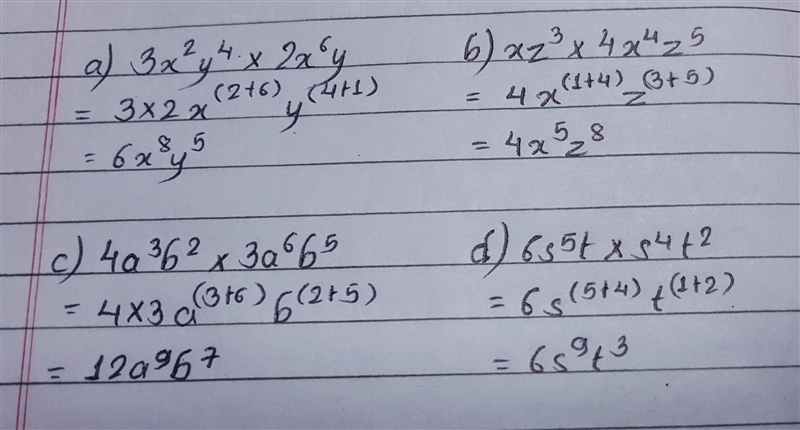 a) 3x²y⁴ × 2x⁶y
= 3×2x⁽²⁺⁶⁾y⁽⁴⁺¹⁾
= 6x⁸y⁵
b) xz³ × 4x⁴z⁵
= 4x⁽¹⁺⁴⁾z⁽³⁺⁵⁾
= 4x⁵z⁸
c) 4a³b² × 3a⁶b⁵
= 4×3a⁽³⁺⁶⁾b⁽²⁺⁵⁾
= 12a⁹b⁷
d) 6s⁵t × s⁴t²
= 6s⁽⁵⁺⁴⁾t⁽¹⁺²⁾
= 6s⁹t³